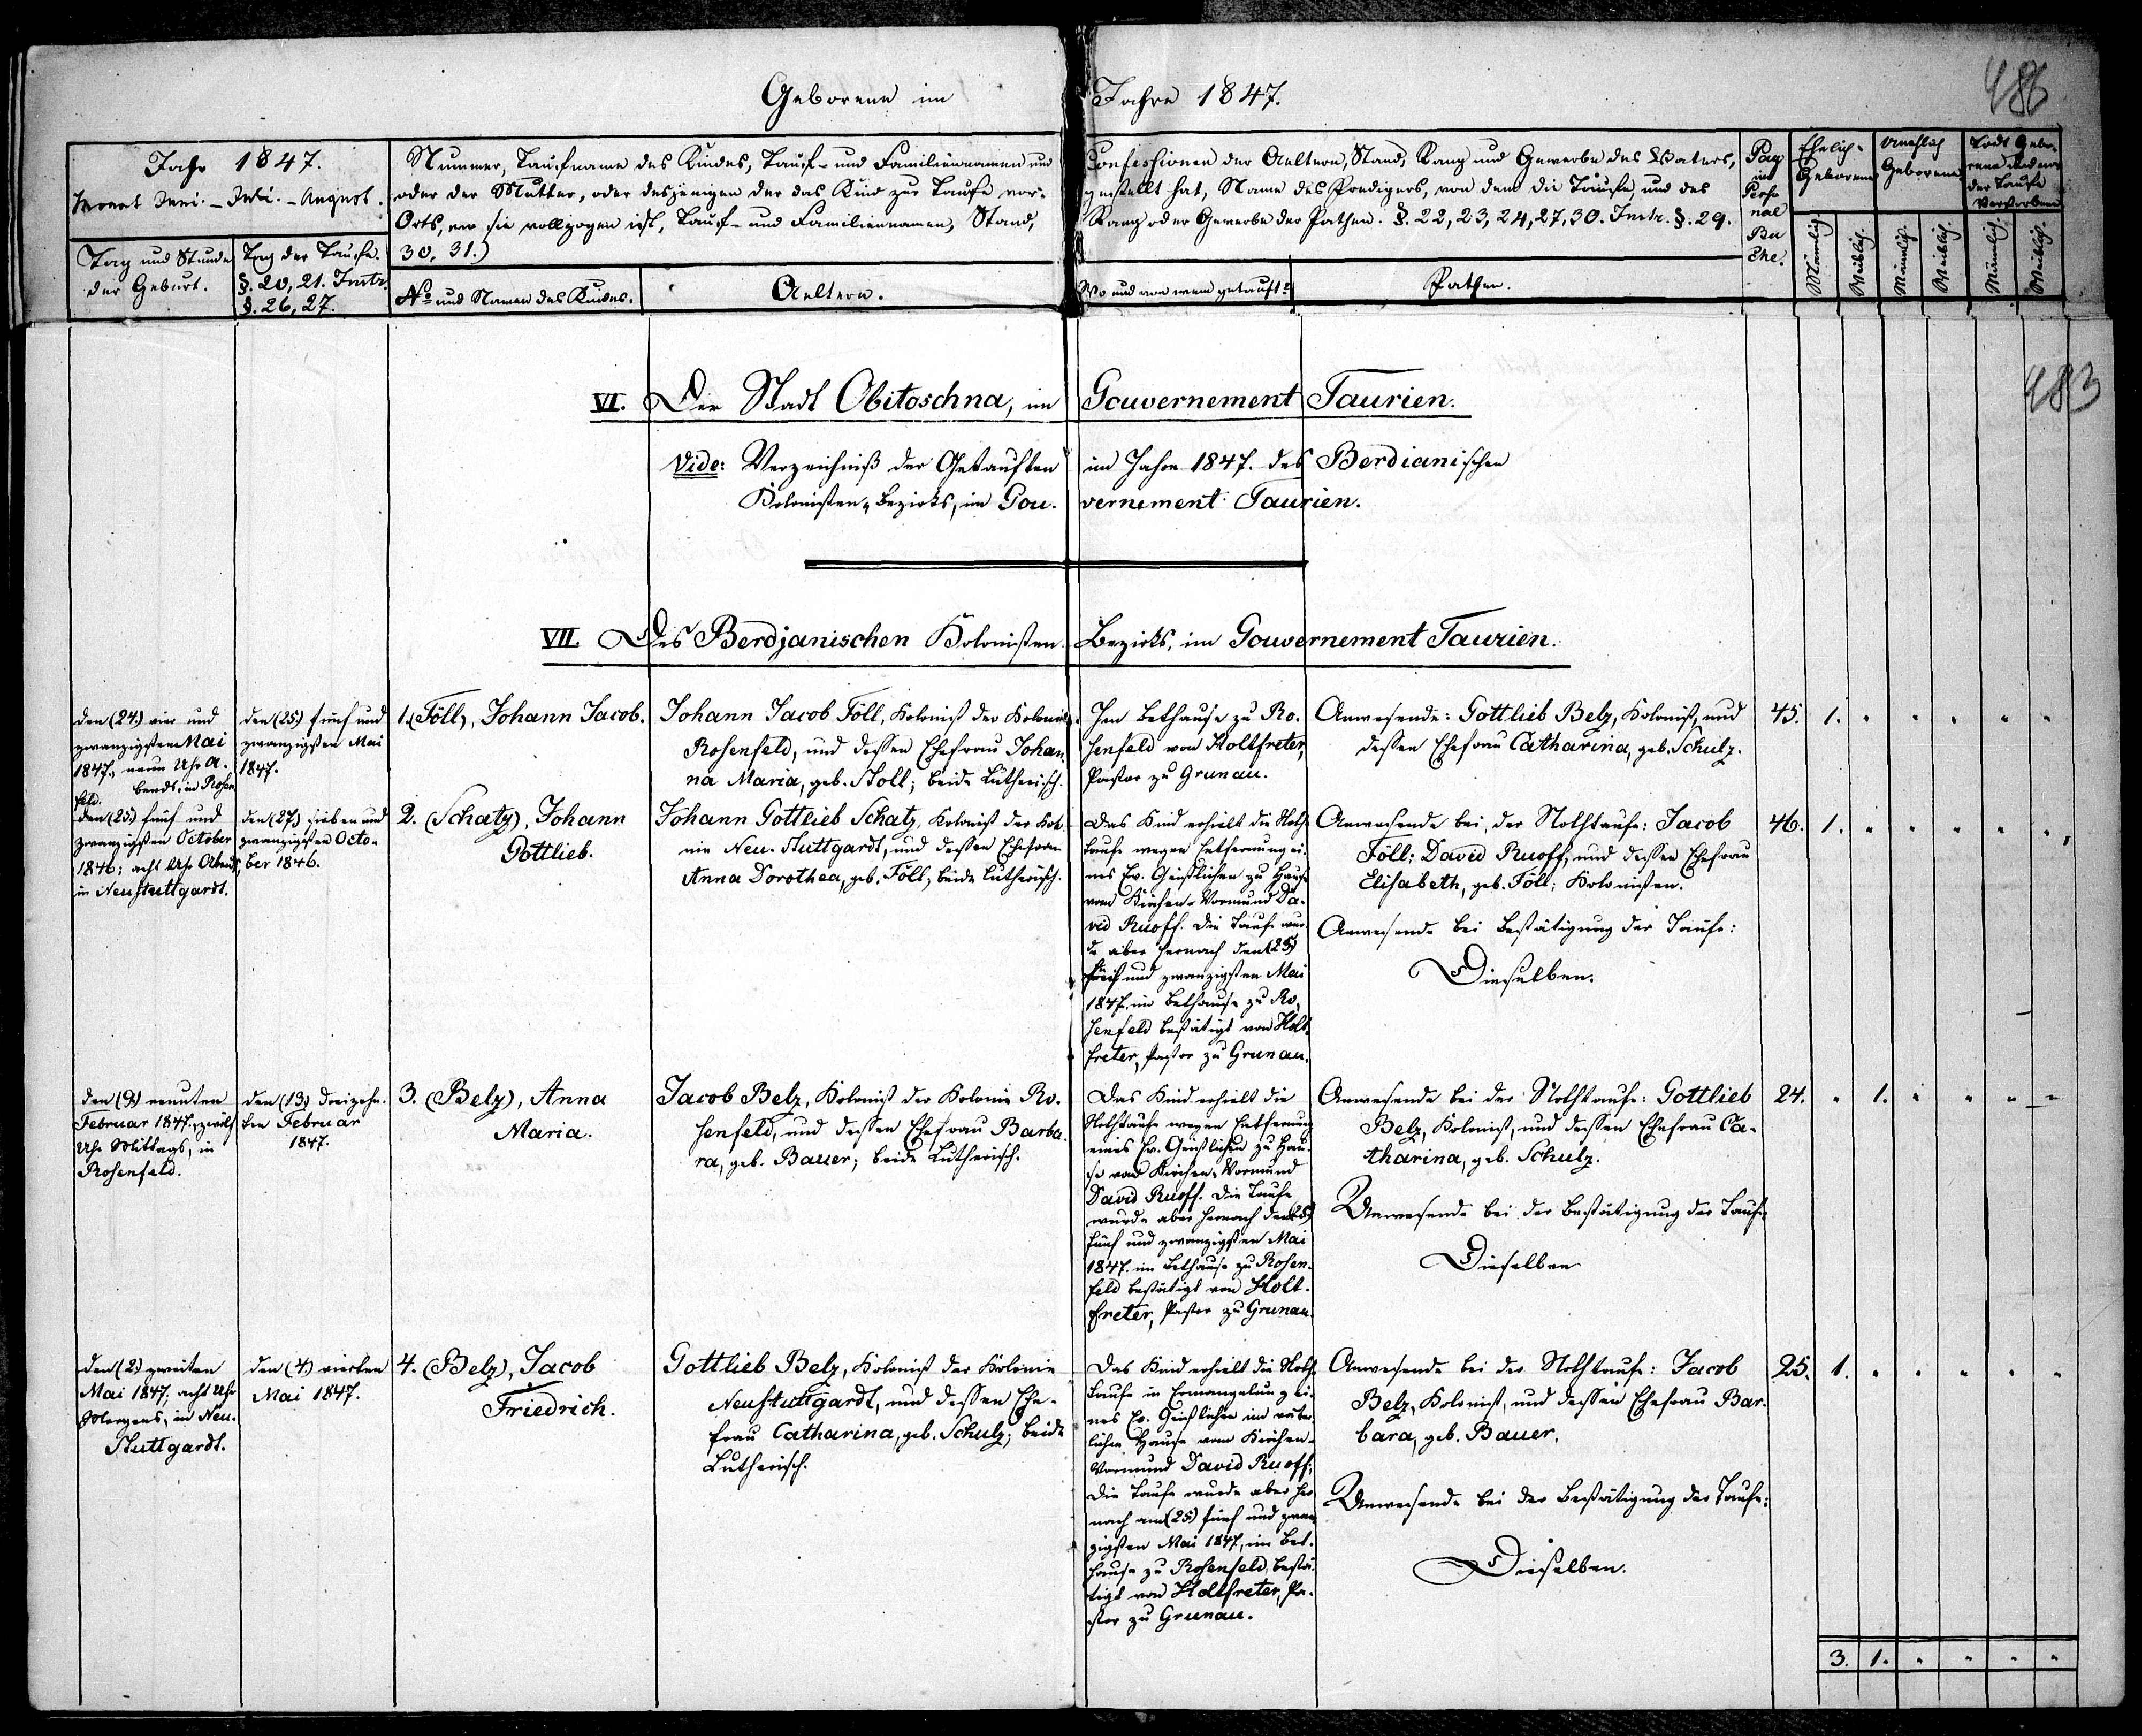 Geborene im Jahre 1847.
486
Jahr 1847.
Monat Juni. - Juli. - August.
Tag und Stunde
der Geburt.
Tag der Taufe.
§. 20, 21. Instr.
§. 26, 27.
Nummer, Taufname des Kindes, Tauf- und Familiennamen und
oder der Mutter, oder desjenigen der das Kind zur Taufe vor-
Orts, wo sie vollzogen ist, Tauf- und Familiennamen, Stand,
30, 31.)
No und Namen des Kindes.
Aeltern.
Confessionen der Aeltern, Stand, Rang und Gewerbe des Vaters,
gestellt hat, Name des Predigers, von dem die Taufe, und des
Rang oder Gewerbe der Pathen. §. 22, 23, 24, 27, 30. Instr. §. 29.
Wo und von wem getauft?
Pathen.
Pag
im
Perso
nal
Bu
che.
Ehelich-
Geborene
Unehlich
Geborene
Todt Gebo-
rene und vor
der Taufe
Verstorbene
Männlich.
Weiblich.
Männlich.
Weiblich.
Männlich.
Weiblich.
483
VI. Der Stadt Obitoschna, im Gouvernement Taurien.
Vide: Verzeichniß der Getauften im Jahre 1847. des Berdianischen
Kolonisten-Bezirks, im Gou-vernement Taurien.
VII. Des Berdjanischen Kolonisten-Bezirks, im Gouvernement Taurien.
den (24.) vier und
zwanzigsten Mai
1847., neun Uhr A-
bends, in Rosen
feld.
den (25.) fünf und
zwanzigsten Mai
1847.
1. (Föll), Johann Jacob.
Johann Jacob Föll, Kolonist der Kolonie
Rosenfeld, und dessen Ehefrau Johan-
na Maria, geb. Stoll; beide Lutherisch.
Im Bethause zu Ro-
senfeld von Holtfreter,
Pastor zu Grunau.
Anwesende: Gottlieb Belz, Kolonist, und
dessen Ehefrau Catharina, geb. Schulz.
45. 1. " " " " "
den (25.) fünf und
zwanzigsten October
1846; acht Uhr Abends,
in Neustuttgardt.
den (27.) sieben und
zwanzigsten Octo-
ber 1846.
2. (Schatz), Johann
Gottlieb.
Johann Gottlieb Schatz, Kolonist der Kolo-
nie Neu-Stuttgardt, und dessen Ehefrau
Anna Dorothea, geb. Föll; beide Lutherisch.
Das Kind erhielt die Noth-
taufe wegen Entfernung ei-
nes Ev. Geistlichen zu Hause
vom Kirchen-Vormund Da-
vid Ruoff. Die Taufe wur-
de aber hernach den (25.)
fünf und zwanzigsten Mai
1847. im Bethause zu Ro-
senfeld bestätigt von Holt-
freter, Pastor zu Grunau.
Anwesende bei der Nothtaufe: Jacob
Föll; David Ruoff, und dessen Ehefrau
Elisabeth, geb. Föll; Kolonisten.
Anwesende bei Bestätigung der Taufe:
Dieselben.
46. 1. " " " " "
den (9.) neunten
Februar 1847., zwölf
Uhr Mittags, in
Rosenfeld.
den (13.) dreizehn-
ten Februar
1847.
3. (Belz), Anna
Maria.
Jacob Belz, Kolonist der Kolonie Ro-
senfeld, und dessen Ehefrau Barba-
ra, geb. Bauer; beide Lutherisch.
Das Kind erhielt die
Nothtaufe wegen Entfernung
eines Ev. Geistlichen zu Hau-
se vom Kirchen-Vormund
David Ruoff. Die Taufe
wurde aber hernach den (25.)
fünf und zwanzigsten Mai
1847. im Bethause zu Rosen-
feld bestätigt von Holt-
freter, Pastor zu Grunau.
Anwesende bei der Nothtaufe: Gottlieb
Belz, Kolonist, und dessen Ehefrau Ca-
tharina, geb. Schulz.
Anwesende bei der Bestätigung der Taufe
Dieselben
24. " 1. " " " "
den (2.) zweiten
Mai 1847., acht Uhr
Morgens, in Neu-
Stuttgardt.
den (4.) vierten
Mai 1847.
4. (Belz), Jacob
Friedrich.
Gottlieb Belz, Kolonist der Kolonie
Neustuttgardt, und dessen Ehe-
frau Catharina, geb. Schulz; beide
Lutherisch.
Das Kind erhielt die Noth-
taufe in Ermangelung ei-
nes Ev. Geistlichen im väter-
lichen Hause vom Kirchen-
Vormund David Ruoff;
die Taufe wurde aber her
nach am (25.) fünf und zwan
zigsten Mai 1847, im Bet-
hause zu Rosenfeld, bestä-
tigt von Holtfreter, Pa-
stor zu Grunau.
Anwesende bei der Nothtaufe: Jacob
Belz, Kolonist, und dessen Ehefrau Bar-
bara, geb. Bauer.
Anwesende bei der Bestätigung der Taufe:
Dieselben.
25. 1. " " " " "
3. 1. " " " "